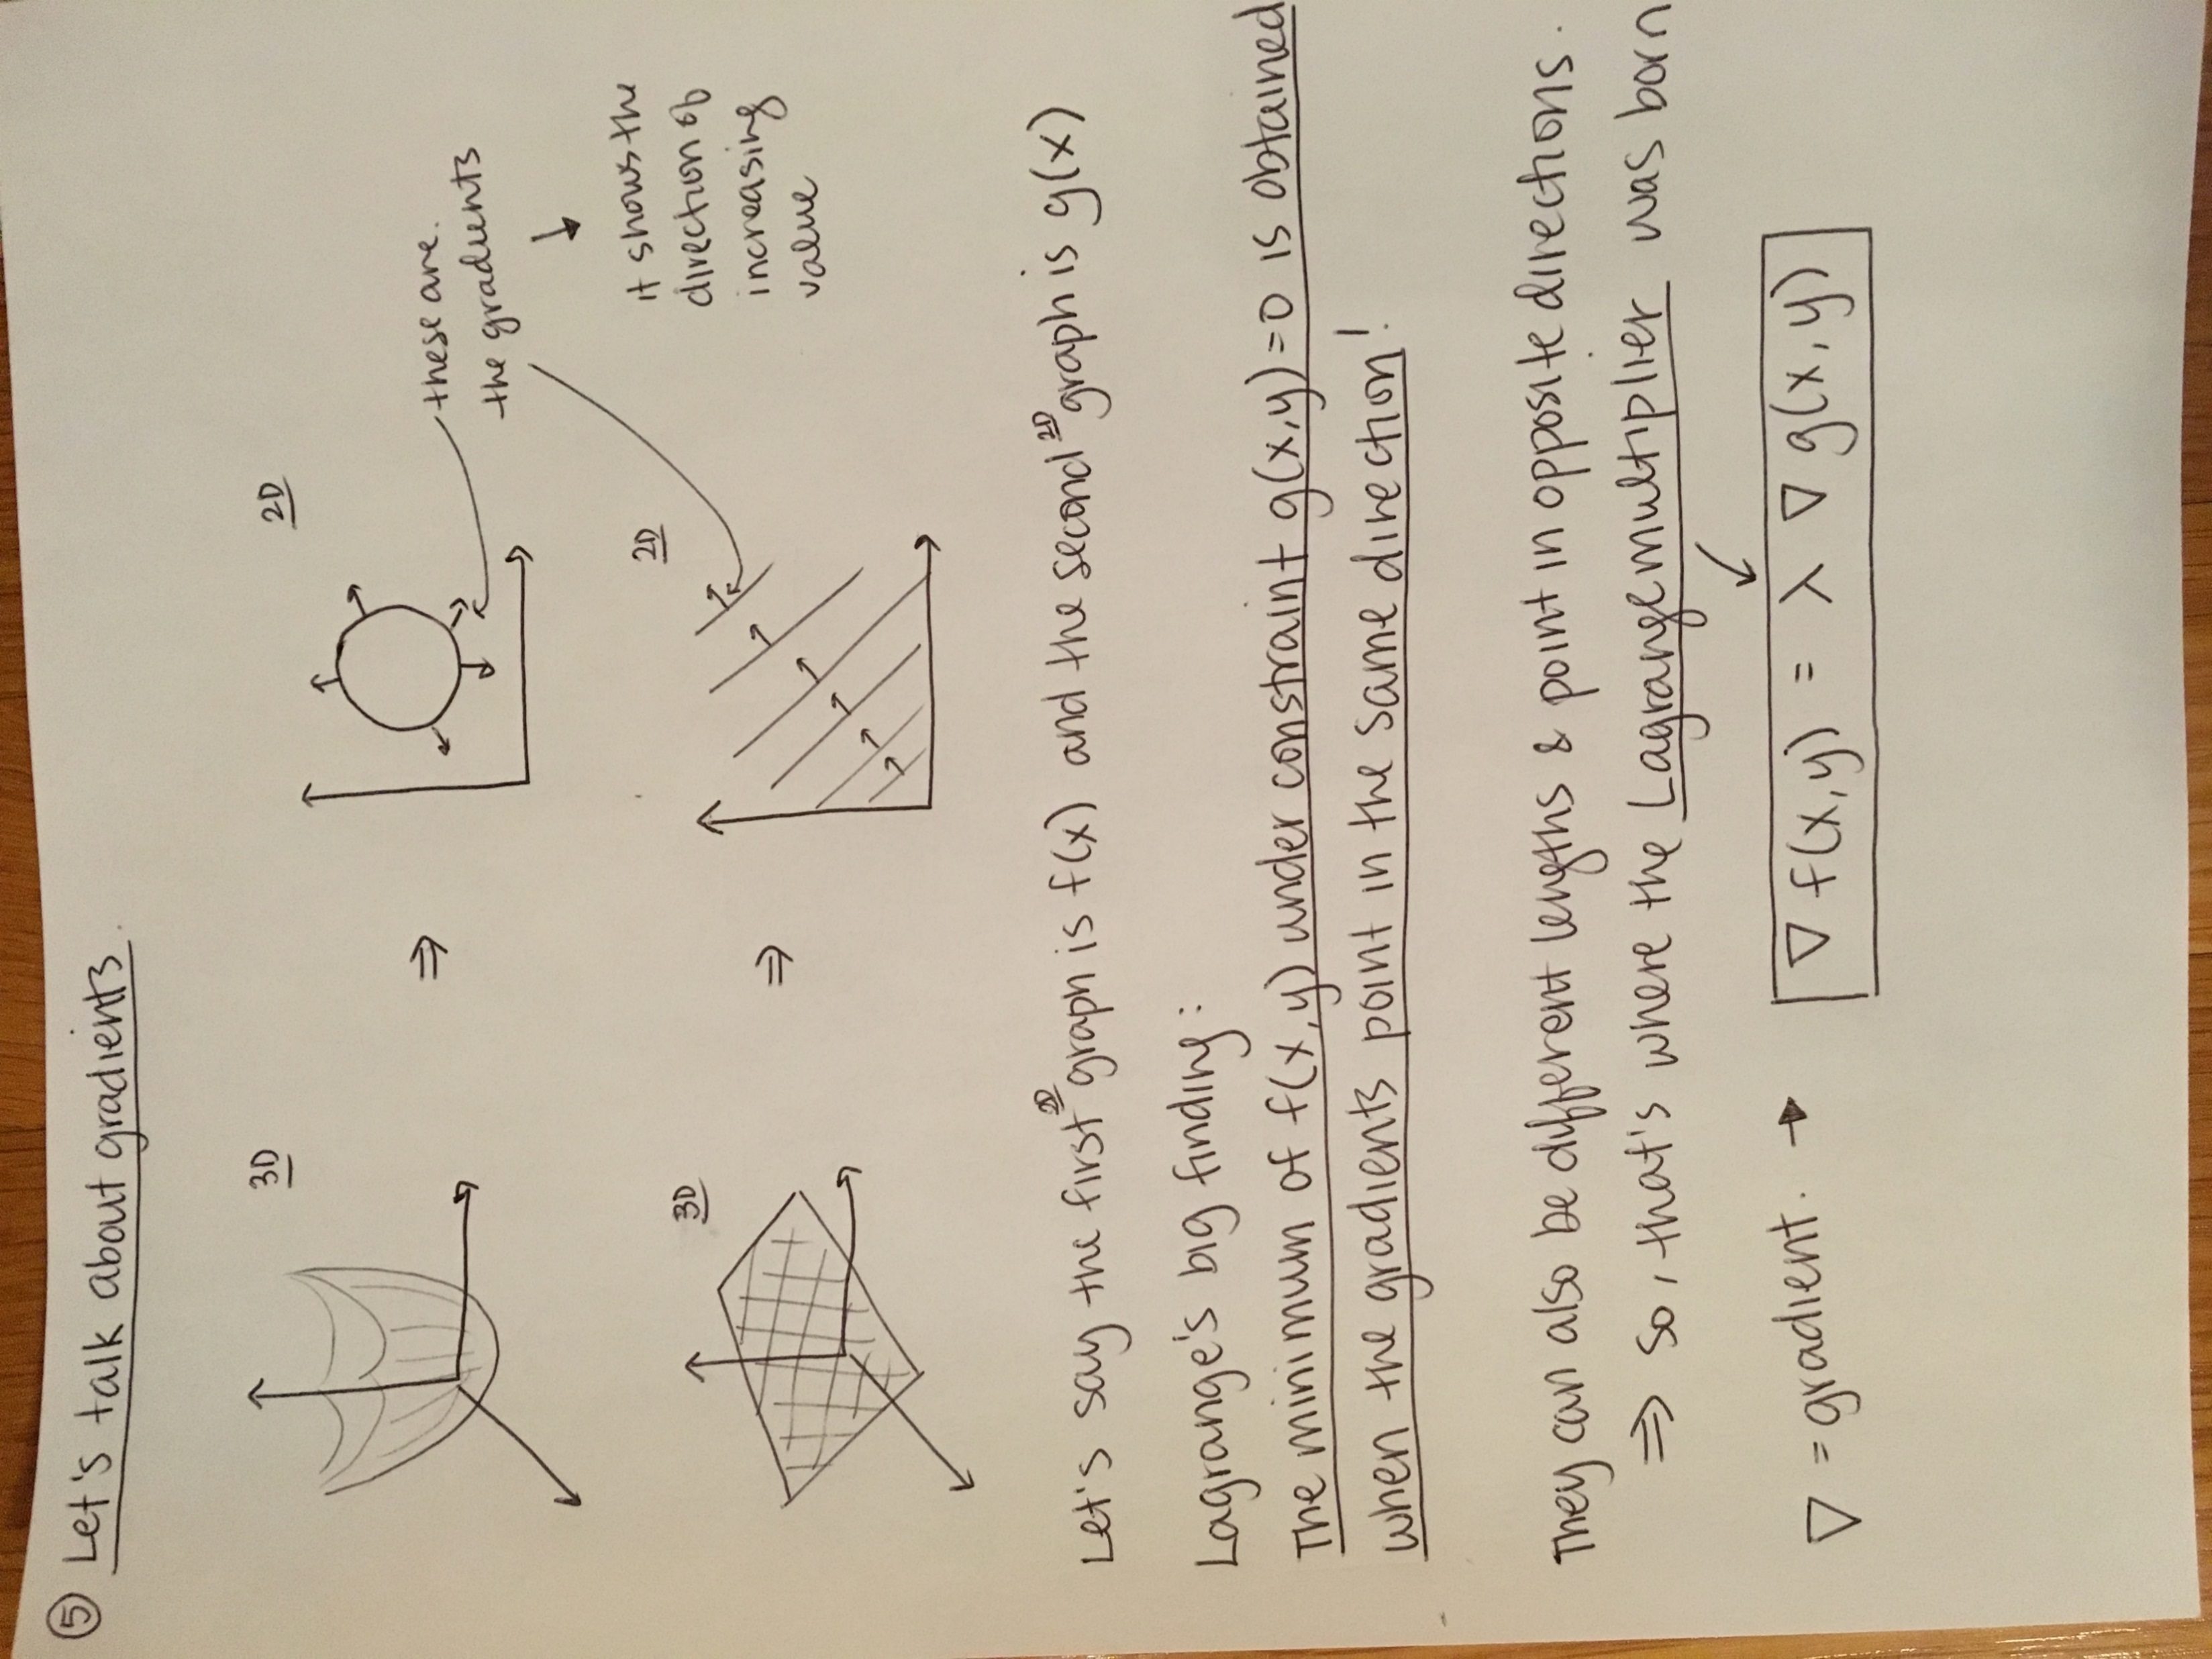 ⑤ Let's talk about gradients.
3D
⇒
2D
these are
the gradients
it shows the
direction of
increasing
value
3D
⇒
2D
Let's say the first 2D graph is f(x) and the second 2D graph is g(x)
Lagrange's big finding:
The minimum of f(x,y) under constraint g(x,y)=0 is obtained
when the gradients point in the same direction!
They can also be different lengths & point in opposite directions.
⇒ so, that's where the Lagrange multiplier was born
∇ = gradient. → ∇ f(x,y) = λ ∇ g(x,y)